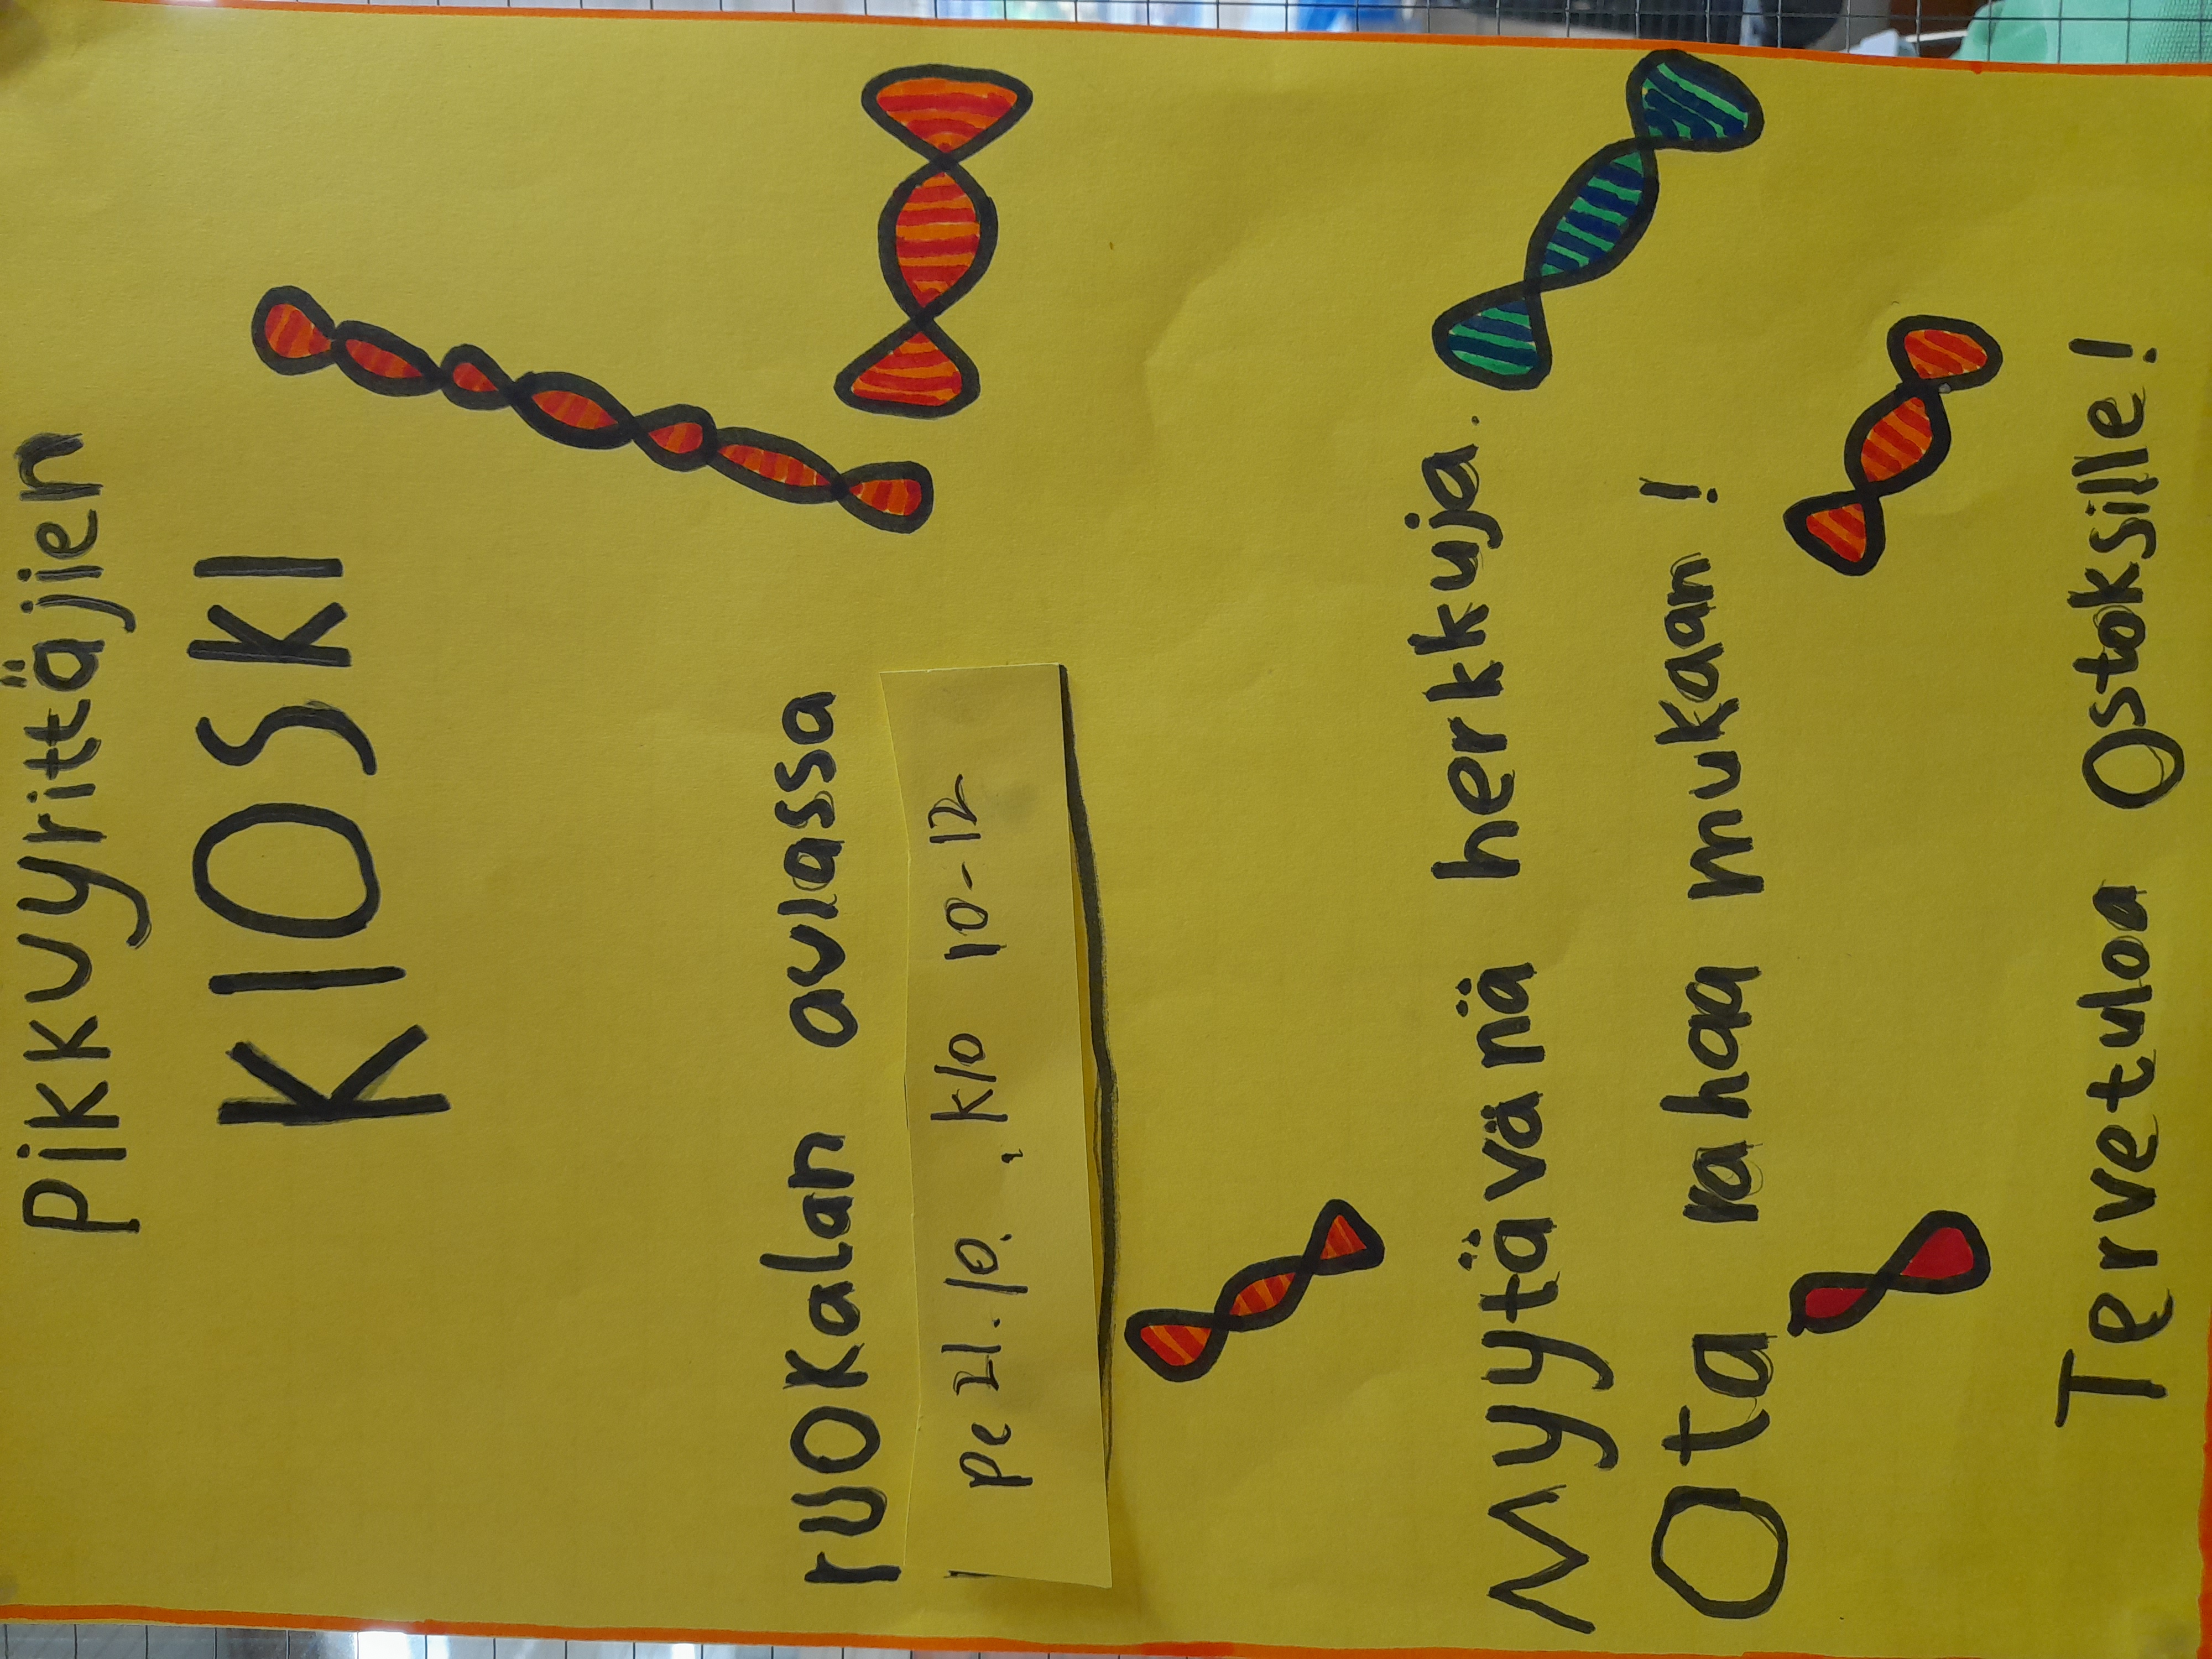 pikkuyrittäjien
KIOSKI
ruokalan aulassa
pe 21.10. , klo 10-12
Myytävänä herkkuja.
Ota rahaa mukaan!
Tervetuloa Ostoksille!